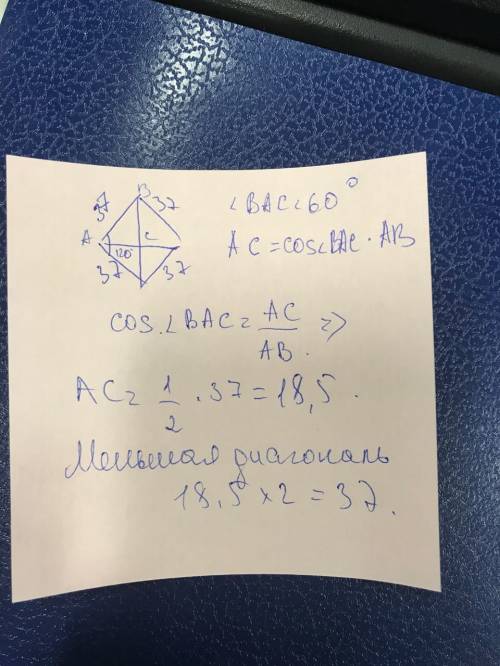 B
37 37
A C
120°
37 37
∠BAC < 60°
AC = cos∠BAC · AB
cos.∠BAC = AC/AB. =>
AC = 1/2 · 37 = 18,5.
Меньшая диагональ
18,5 × 2 = 37.